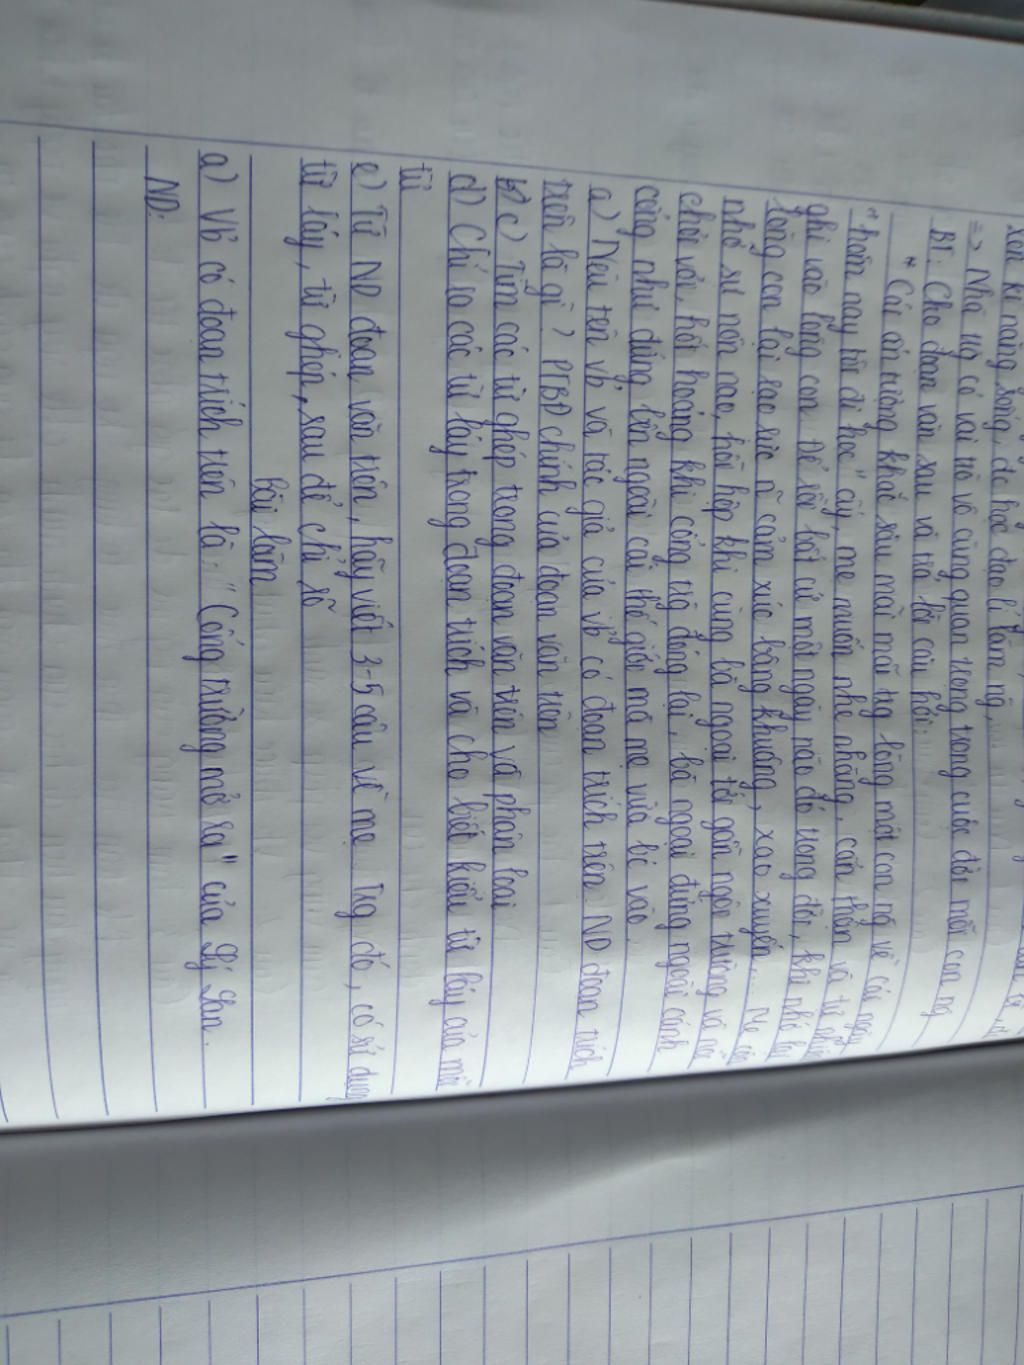 kĩ năng sống, đc học đạo lí làm ng,
=> Nhà trg có vai trò vô cùng quan trọng trong cuộc đời mỗi con ng
BT: Cho đoạn văn sau và trả lời câu hỏi:
" Cái ấn tượng khắc sâu mãi mãi trg lòng một con ng về cái ngày
"hôm nay tôi đi học" ấy, mẹ muốn nhẹ nhàng, cẩn thận và tự nhiên
ghi vào lòng con. Để rồi bất cứ một ngày nào đó trong đời, khi nhớ lại
lòng con lại rạo rực n~ cảm xúc bâng khuâng, xao xuyến... Mẹ còn
nhớ sự nôn nao, hồi hộp khi cùng bà ngoại tới gần ngôi trường và nỗi
chơi vơi, hốt hoảng khi cổng trg đóng lại, bà ngoại đứng ngoài cánh
cổng như đứng bên ngoài cái thế giới mà mẹ vừa bc vào
a) Nêu tên vb và tác giả của vb có đoạn trích trên. ND đoạn trích
trên là gì? PTBĐ chính của đoạn văn trên
c) Tìm các từ ghép trong đoạn văn trên và phân loại
d) Chỉ ra các từ láy trong đoạn trích và cho biết kiểu từ láy của mỗi
từ
e) Từ ND đoạn văn trên, hãy viết 3-5 câu về mẹ. Trg đó, có sử dụng
từ láy, từ ghép, sau để chỉ rõ
Bài làm
a) Vb có đoạn trích trên là: "Cổng trường mở ra" của Lý Lan.
ND: